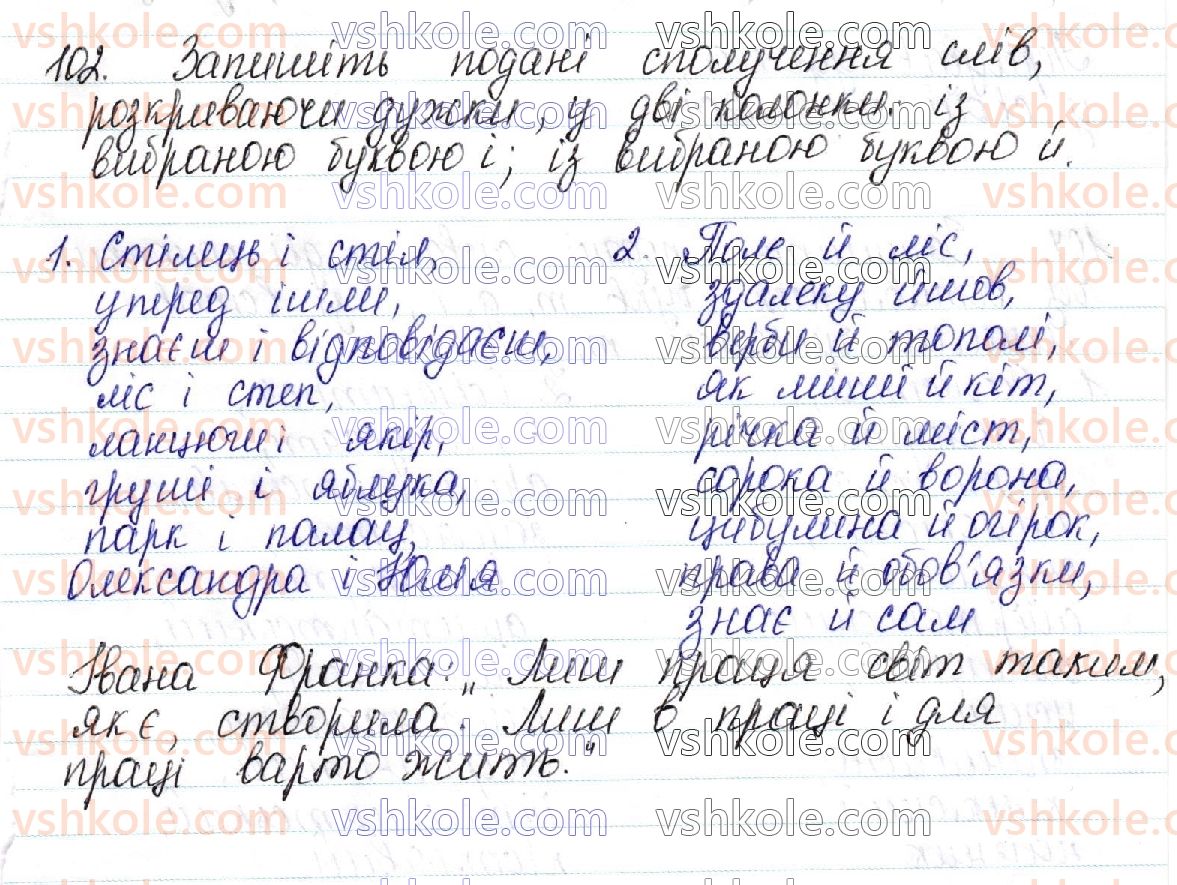 102. Запишіть подані сполучення слів,
розкриваючи дужки, у дві колонки: із
вибраною буквою і; із вибраною буквою й.
1. Стілець і стіл,
уперед ішли,
знаєш і відповідаєш,
ліс і степ,
ланцюги і якір,
груші і яблука,
парк і палац,
Олександра і Юлія
2. Поле й ліс,
здалеку йшов,
верби й тополі,
як миший й кіт,
річка й міст,
сорока й ворона,
цибулина й огірок,
права й обов'язки,
знає й сам
Івана Франка: „Лиш праця світ таким,
як є, створила. Лиш в праці і для
праці варто жить."
vshkole.com